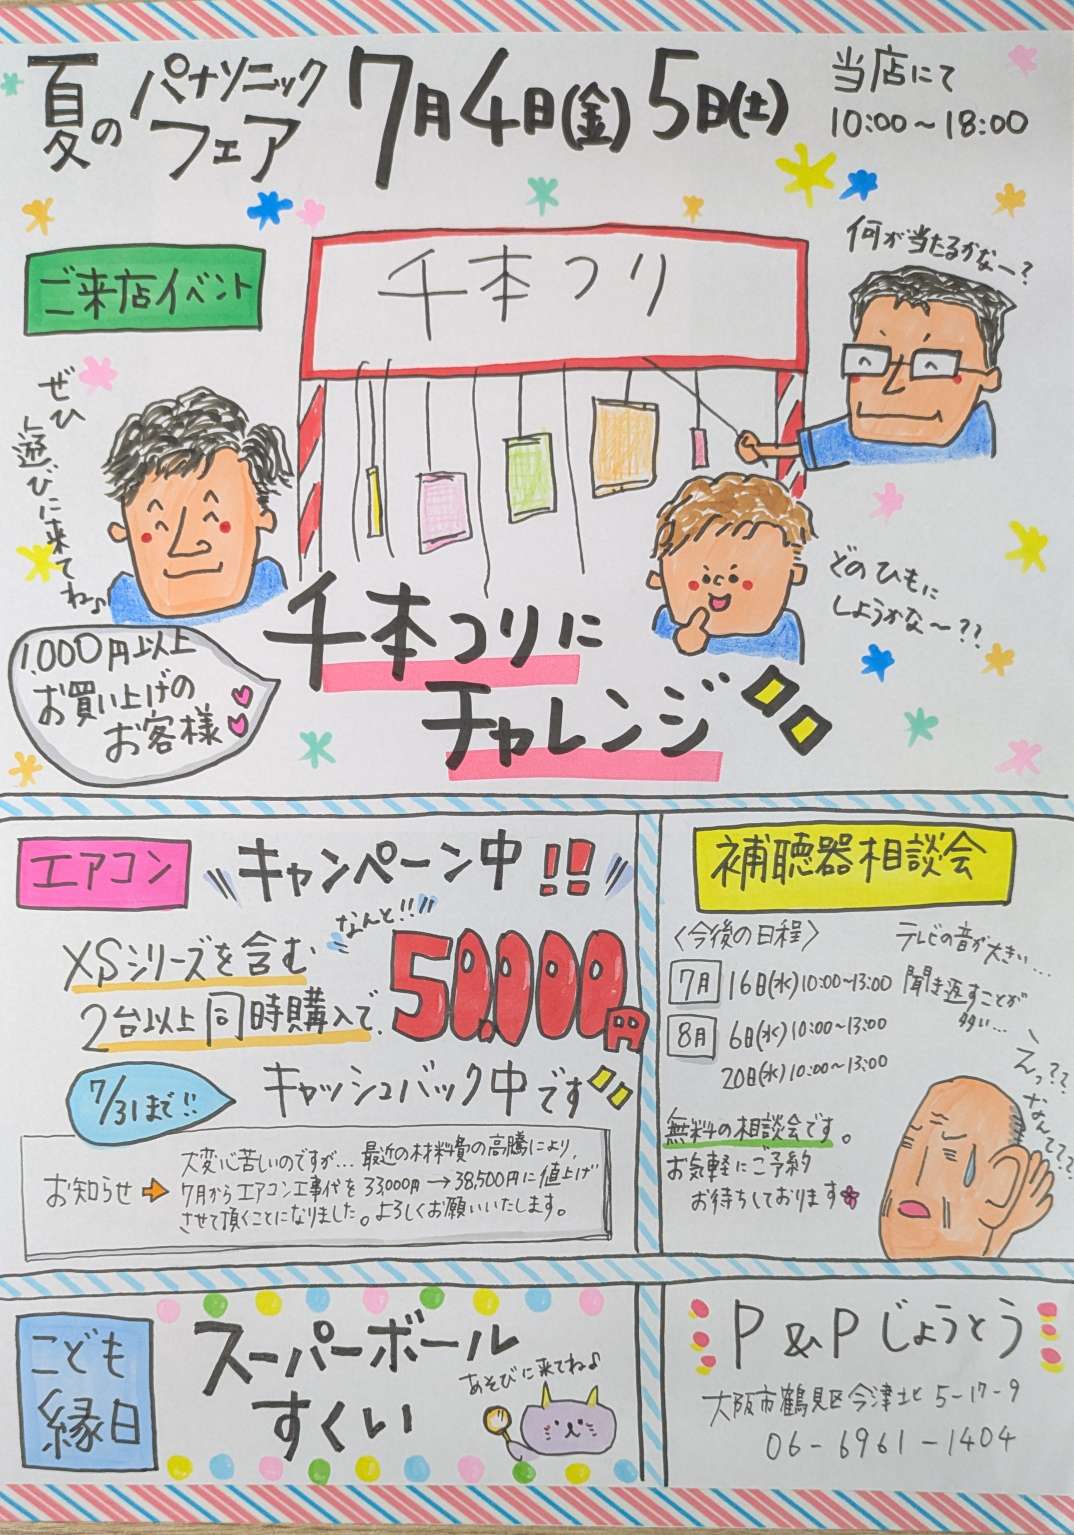 夏の パナソニックフェア 7月4日(金)5日(土)
当店にて
10:00〜18:00
ご来店イベント
千本つり
何が当たるかなー?
ぜひ
遊びに来てね♪
どのひもに
しようかな〜??
千本つりに
チャレンジ
1.000円以上
お買い上げの
お客様
エアコン キャンペーン中!!
なんと!!
XSシリーズを含む
2台以上同時購入で、50,000円
7/31まで!!
キャッシュバック中です
お知らせ→
大変心苦しいのですが…最近の材料費の高騰により、
7月からエアコン工事代を33,000円→38,500円に値上げ
させて頂くことになりました。よろしくお願いいたします。
補聴器相談会
〈今後の日程〉
7月 16日(水)10:00〜13:00
8月 6日(水)10:00〜13:00
20日(水)10:00〜13:00
テレビの音が大きい…
聞き返すことが
多い…
えっ??
なんてて??
無料の相談会です。
お気軽にご予約
お待ちしております
こども
縁日
スーパーボール
すくい
あそびに来てね♪
P&Pじょうとう
大阪市鶴見区今津北5-17-9
06-6961-1404